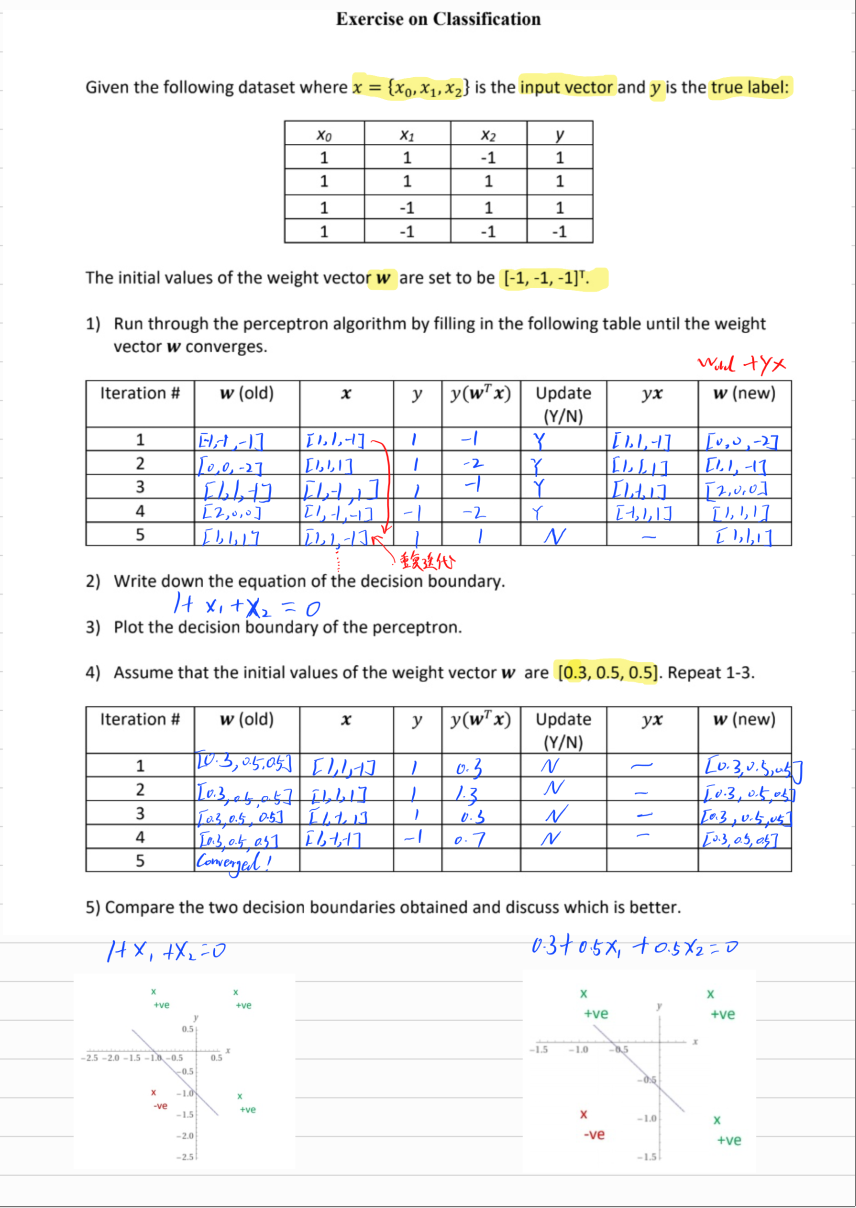 Exercise on Classification
Given the following dataset where x = {x₀, x₁, x₂} is the input vector and y is the true label:
x₀ x₁ x₂ y
1 1 -1 1
1 1 1 1
1 -1 1 1
1 -1 -1 -1
The initial values of the weight vector w are set to be [-1, -1, -1]ᵀ.
1) Run through the perceptron algorithm by filling in the following table until the weight
vector w converges.
Wold +yx
Iteration # w (old) x y y(wᵀx) Update yx w (new)
(Y/N)
1 [-1,-1,-1] [1,1,-1] 1 -1 Y [1,1,-1] [0,0,-2]
2 [0,0,-2] [1,1,1] 1 -2 Y [1,1,1] [1,1,-1]
3 [1,1,-1] [1,-1,1] 1 -1 Y [1,-1,1] [2,0,0]
4 [2,0,0] [1,-1,-1] -1 -2 Y [-1,1,1] [1,1,1]
5 [1,1,1] [1,1,-1] 1 1 N – [1,1,1]
重复迭代
2) Write down the equation of the decision boundary.
1+ x₁ +x₂ = 0
3) Plot the decision boundary of the perceptron.
4) Assume that the initial values of the weight vector w are [0.3, 0.5, 0.5]. Repeat 1-3.
Iteration # w (old) x y y(wᵀx) Update yx w (new)
(Y/N)
1 [0.3,0.5,0.5] [1,1,-1] 1 0.3 N – [0.3,0.5,0.5]
2 [0.3,0.5,0.5] [1,1,1] 1 1.3 N – [0.3,0.5,0.5]
3 [0.3,0.5,0.5] [1,-1,1] 1 0.3 N – [0.3,0.5,0.5]
4 [0.3,0.5,0.5] [1,-1,-1] -1 0.7 N – [0.3,0.5,0.5]
5 Converged!
5) Compare the two decision boundaries obtained and discuss which is better.
1+x₁ +x₂=0
0.3+0.5x₁ +0.5x₂=0
x x
+ve +ve
y
0.5
x
-2.5 -2.0 -1.5 -1.0 -0.5 0.5
-0.5
x -1.0 x
-ve +ve
-1.5
-2.0
-2.5
x x
+ve y +ve
x
-1.5 -1.0 -0.5
-0.5
x -1.0 x
-ve +ve
-1.5